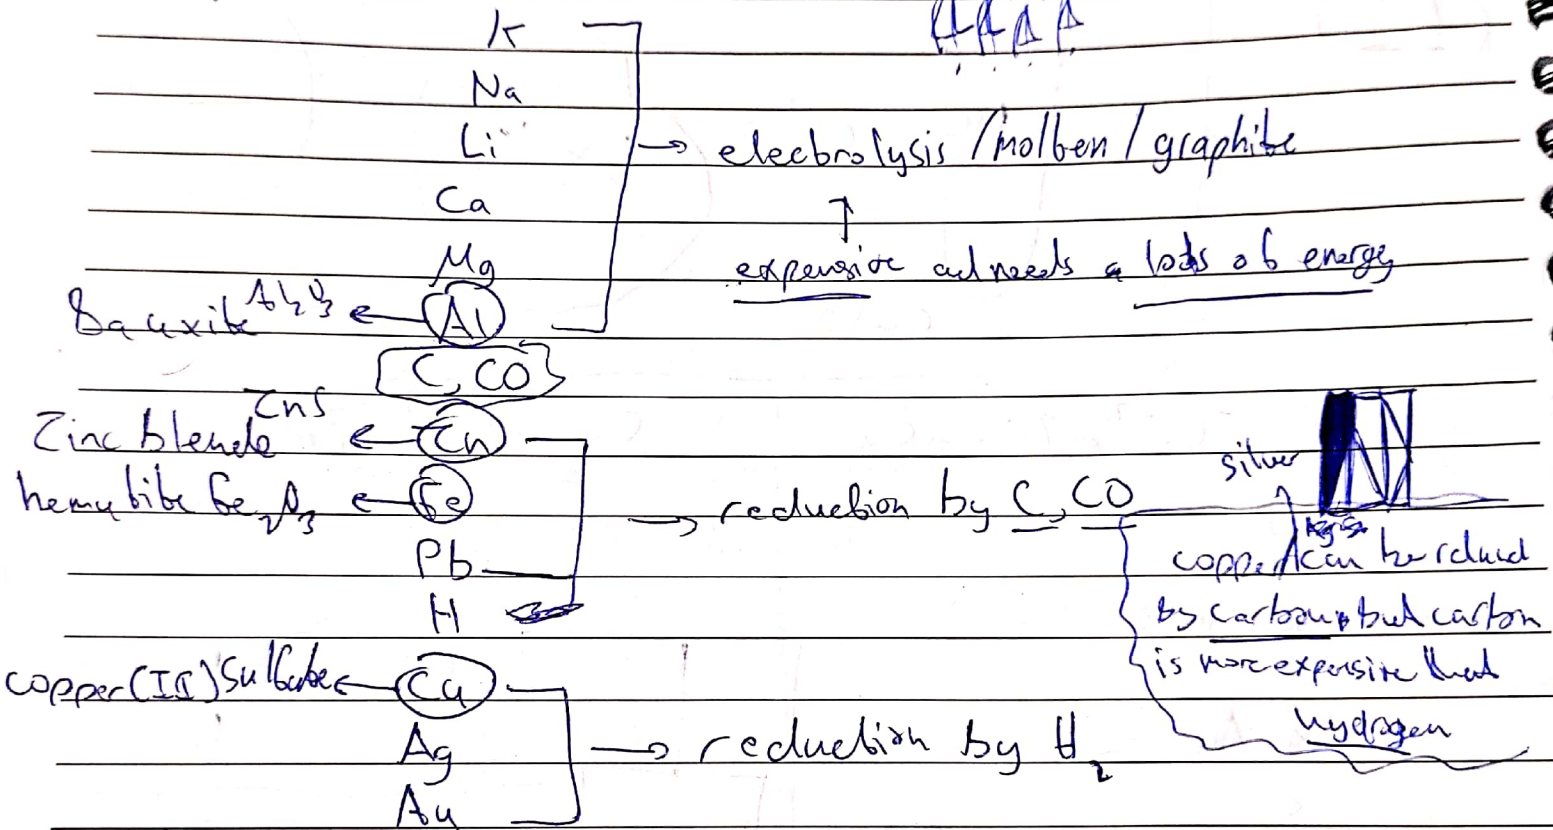 K
Na
Li → electrolysis / molten / graphite
Ca ↑
Mg expensive and needs a lots of energy
Bauxite Al2O3 ← Al
C, CO
Zinc blende ZnS ← Zn
hematite Fe2O3 ← Fe → reduction by C, CO
Pb
H
copper(II) Sulfate ← Cu
Ag → reduction by H2
Au
silver
copper can be reduced
by carbon but carbon
is more expensive that
hydrogen